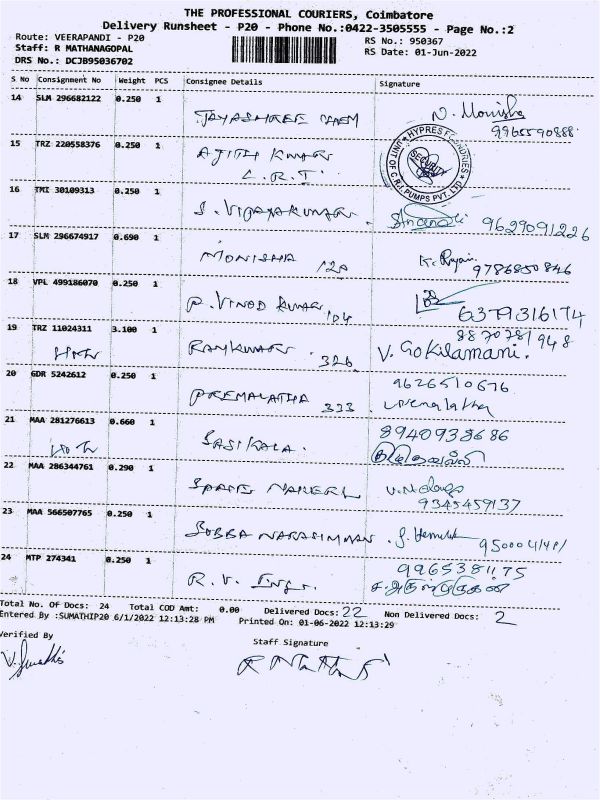 THE PROFESSIONAL COURIERS, Coimbatore
Delivery Runsheet - P20 - Phone No.:0422-3505555 - Page No.:2
Route: VEERAPANDI - P20
RS No.: 950367
Staff: R MATHANAGOPAL
RS Date: 01-Jun-2022
DRS No.: DCJB95036702
S No Consignment No Weight PCS Consignee Details Signature
14 SLM 296682122 0.250 1
N. Monisha
9965590888
15 TRZ 220558376 0.250 1
AJITH KUMAR
C.R.I
UNIT OF C.R.I. PUMPS PVT. LTD
SECURITY
16 TMI 30109313 0.250 1
S. VIJAYAKUMAR. 9629091226
17 SLM 296674917 0.690 1
MONISHA 120
9786850846
18 VPL 499186070 0.250 1
P. VINOD KUMAR 104
6379316174
19 TRZ 11024311 3.100 1
8870781948
RAMKUMAR 326 V. Gokilamani.
20 GDR 5242612 0.250 1
9626510676
PREMALATHA 333. Premalatha
21 MAA 281276613 0.660 1
8940938686
SASIKALA.
22 MAA 286344761 0.290 1
9345459137
23 MAA 566507765 0.250 1
SOBBA NARASIMMAN.
24 MTP 274341 0.250 1
R. V.
Total No. Of Docs: 24 Total COD Amt: 0.00 Delivered Docs: 22 Non Delivered Docs: 2
Entered By :SUMATHIP20 6/1/2022 12:13:28 PM Printed On: 01-06-2022 12:13:29
Verified By
Staff Signature
V. Sumathi